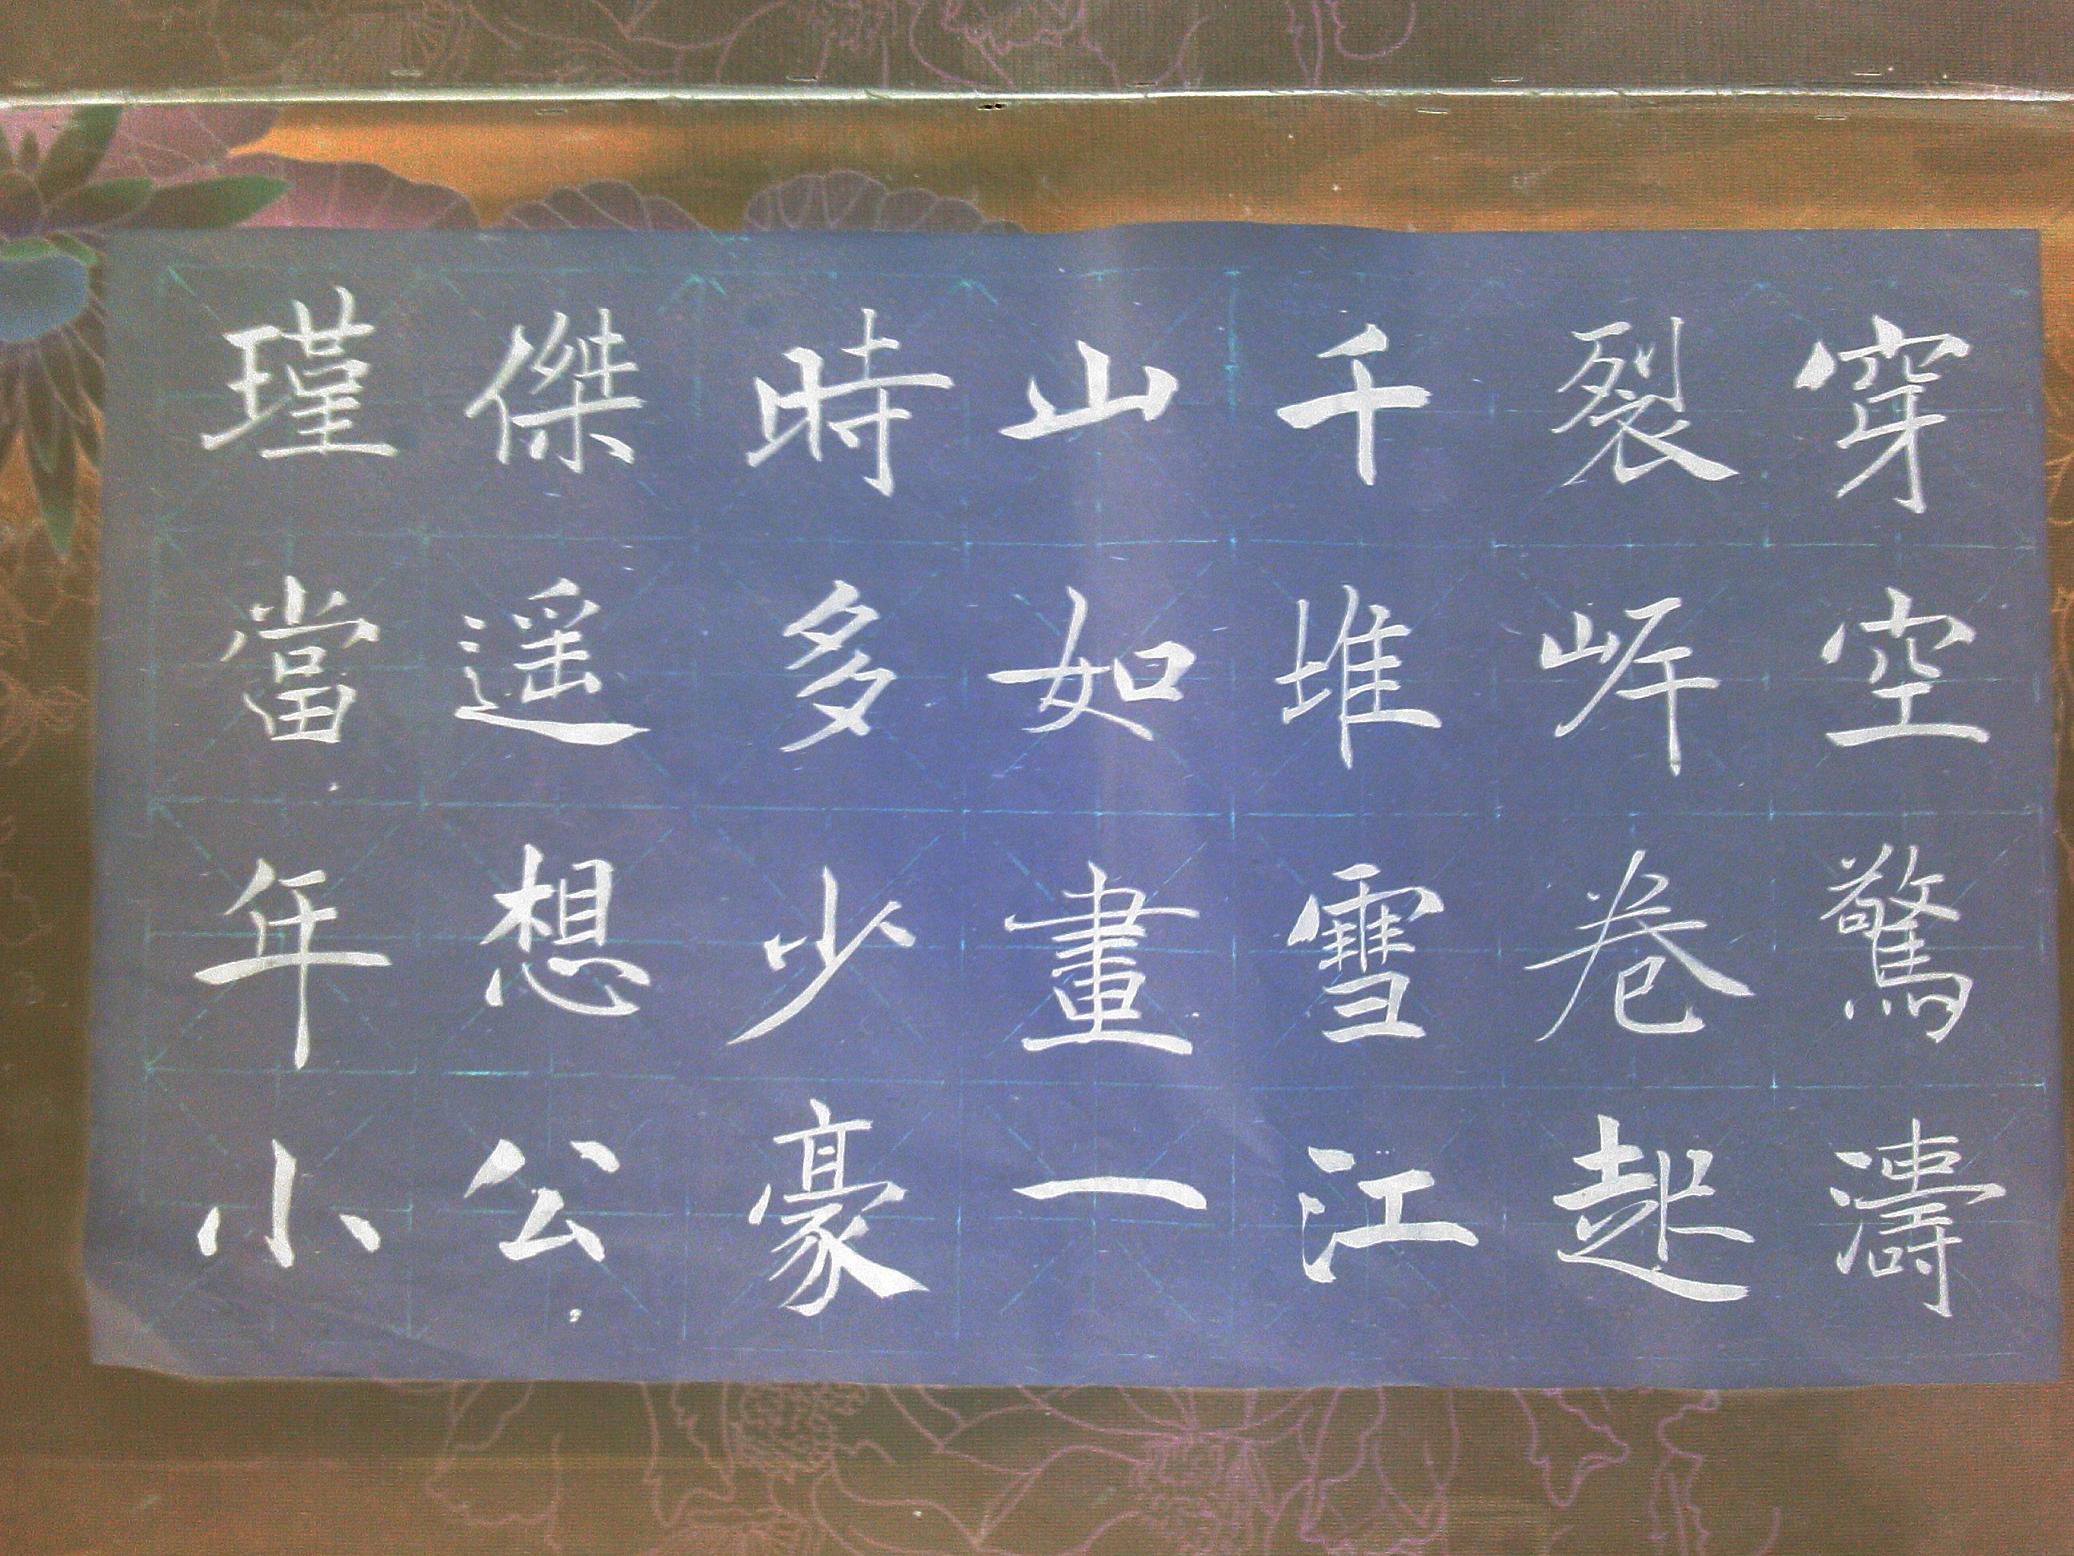 穿空驚濤
裂岸卷起
千堆雪江
山如畫一
時多少豪
傑遥想公
瑾當年小